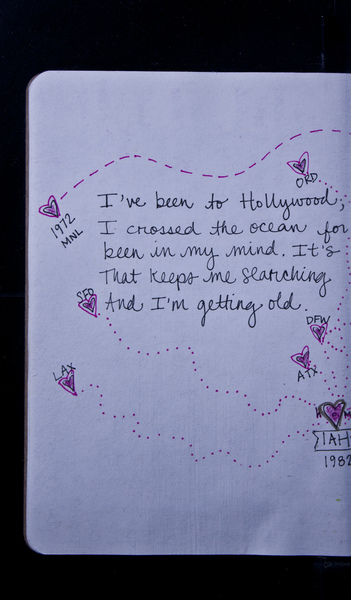 ORD
I've been to Hollywood,
1972
MNL
I crossed the ocean for
been in my mind. It's
That keeps me searching
SFO
And I'm getting old.
DFW
LAX
ATX
H
IAH
1982